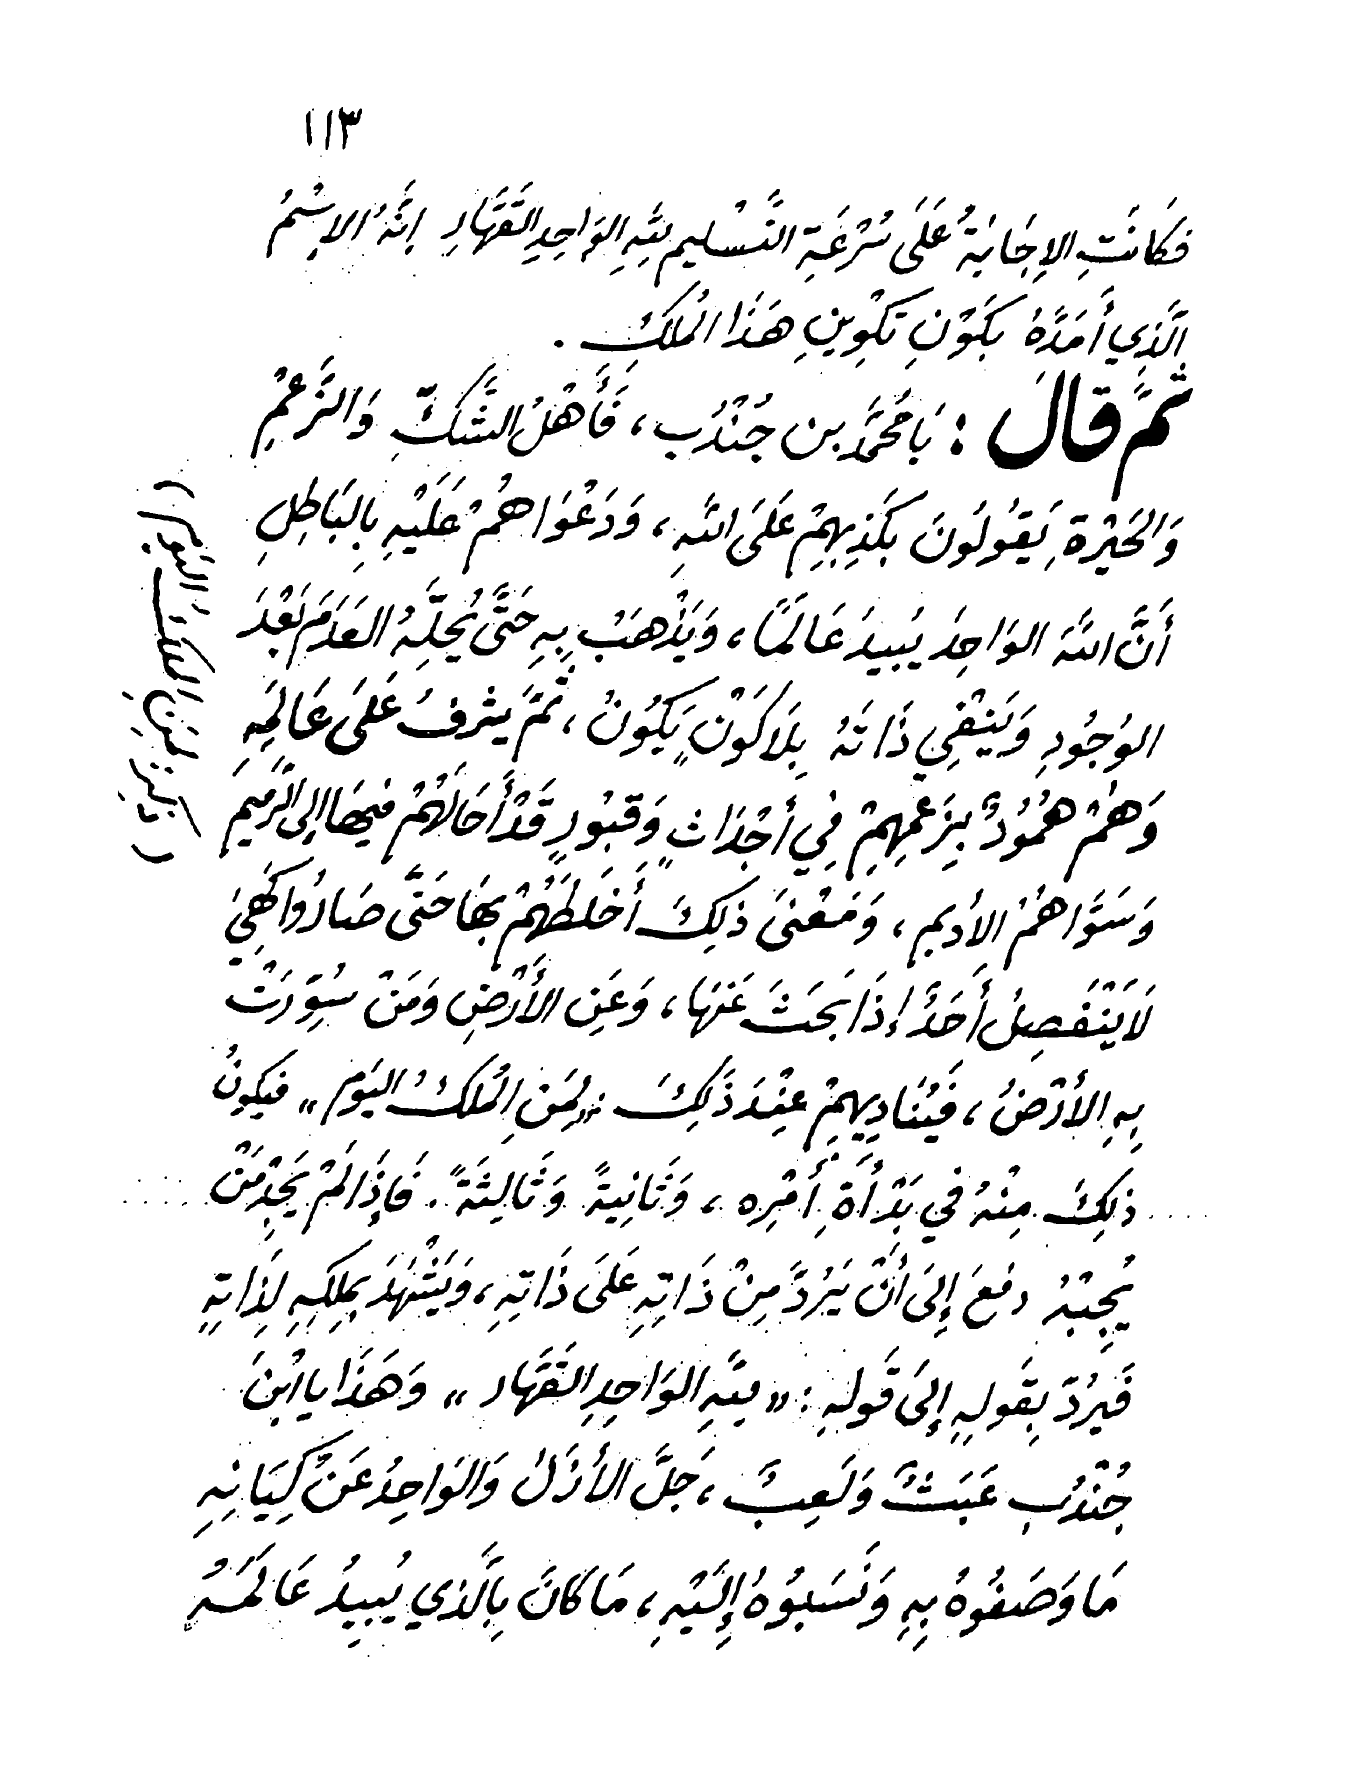 ١١٣
فَكَانَتِ الإِجَابَةُ عَلَى سُرْعَةِ التَّسْليم للهِ الوَاحِدِ القَهَّارِ إنَّهُ الإِسْمُ
الَّذِي أَمَدَّهُ بِكَوْنِ تَكْوِينِ هَذَا المُلْكِ .
ثمَّ قَالَ : يَا مُحَمَّد بن جُنْدُبِ ، فَأَهْلُ الشَّكِّ وَالزَّعْمِ
وَالحَيْرَةِ يَقُولُونَ بِكَذِبِهِمْ عَلَى اللهِ ، وَدَعْوَاهُمْ عَلَيْهِ بِالبَاطِلِ
أَنَّ اللهَ الوَاحِدَ يُبِيدُ عَالَمَاً ، وَيَذْهَبُ بِهِ حَتَّى يُحِلَّهُ العَدَمَ بَعْدَ
الوُجُودِ وَيَنْفِي ذَاتَهُ بِلَا كَوْنٍ يَكُونُ ، ثُمَّ يشْرِفُ عَلَى عَالَمِهِ
وَهُمْ هُمُودٌ بِزَعْمِهِمْ فِي أَجْدَاثٍ وَقُبُورٍ قَدْ أَحَالَهُمْ فِيهَا إلى الرَّمِيمِ
وَسَوَّاهُمُ الأدِيم ، وَمَعْنَى ذلِكَ أَخَلَطَهُمْ بِهَا حَتَّى صَارُوا كَهِيَ
لَا يَنْفَصِلُ أَحَدٌ إذَا بَحَثَ عَنهَا ، وَعَنِ الأَرْضِ وَمَنْ سُوِّرَتْ
بِهِ الأَرْضُ ، فَيُنَادِيهِمْ عِنْدَ ذَلِكَ : « لِمَنِ المُلْكُ اليَوْم » فيكونُ
ذلِكَ مِنْهُ فِي بَدْأَةِ أَمْرِهِ ، وَثَانِيةً وَثَالِثَةً . فَإِذَا لَمْ يَجِدْ مَنْ
يُجِبْهُ دفعَ إِلَى أَنْ يَرُدَّ مِنْ ذَاتِهِ عَلَى ذَاتِهِ ، وَيَشْهَدَ بِمُلكِهِ لِذَاتِهِ
فَيرُدّ بِقَولِهِ إِلَى قَولِهِ : « للهِ الوَاحِدِ القَهَّار » وَهَذَا يا ابْنَ
جُنْدُبِ عَبَثٌ وَلَعِبٌ ، جَلَّ الأَزَلُ وَالوَاحِدُ عَنْ كِيَانِهِ
مَا وَصَفُوهُ بِهِ وَنَسَبُوهُ إِلَيْهِ ، مَا كَانَ بِالَّذِي يُبِيدُ عَالَمَهُ